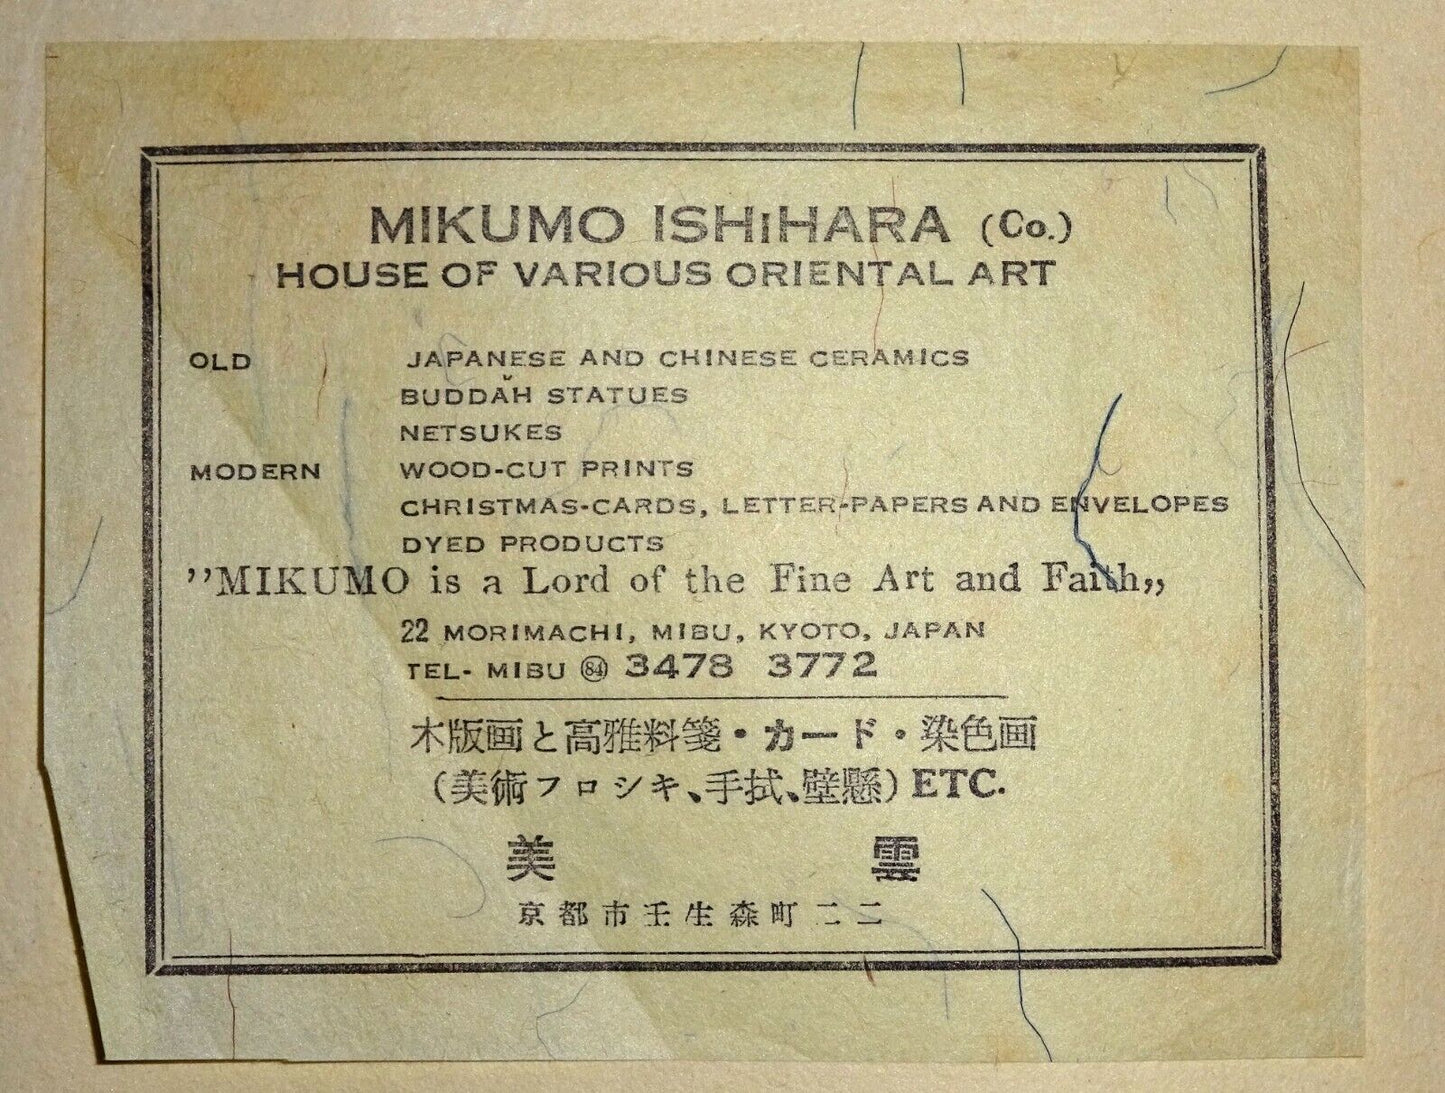 MIKUMO ISHiHARA (Co.)
HOUSE OF VARIOUS ORIENTAL ART
OLD JAPANESE AND CHINESE CERAMICS
BUDDAH STATUES
NETSUKES
MODERN WOOD-CUT PRINTS
CHRISTMAS-CARDS, LETTER-PAPERS AND ENVELOPES
DYED PRODUCTS
”MIKUMO is a Lord of the Fine Art and Faith„
22 MORIMACHI, MIBU, KYOTO, JAPAN
TEL- MIBU (84) 3478 3772
木版画と高雅料箋・カード・染色画
(美術フロシキ、手拭、壁懸) ETC.
美 雲
京都市壬生森町二二